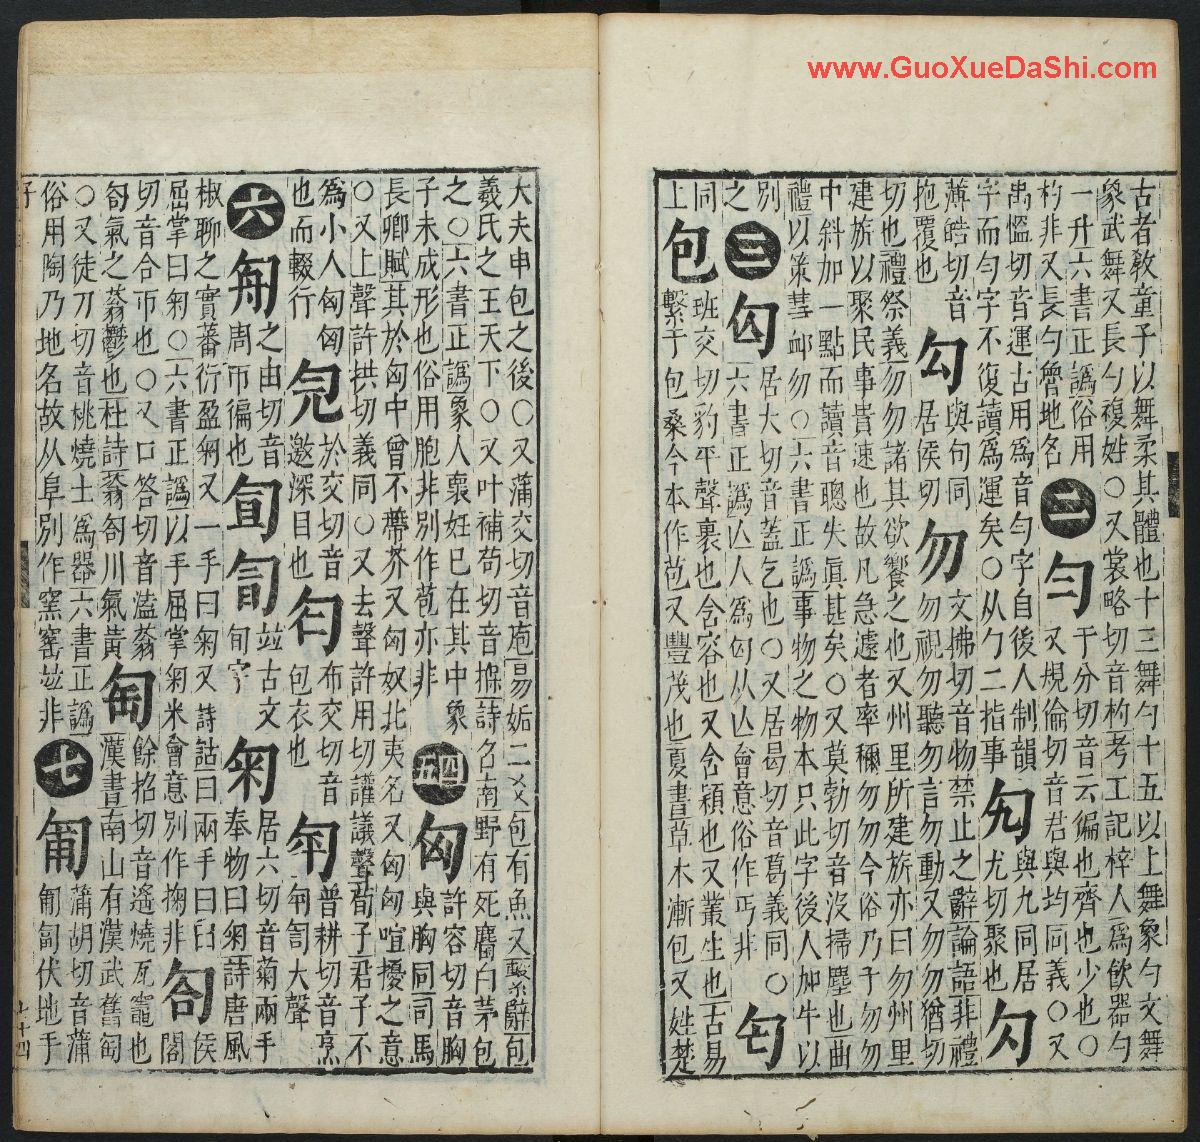 古者教童子以舞柔其體也十三舞勺十五以上舞象勺文舞
象武舞又長勺複姓○又裳略切音杓考工記梓人爲飲器勺
一升六書正譌俗用
杓非又長勺魯地名
二
勻
于分切音云徧也齊也少也○
又規倫切音君與均同義○又
禹慍切音運古用爲音勻字自後人制韻
字而勻字不復讀爲運矣○从勹二指事
勼
與九同居
尤切聚也
勽
薄皓切音
抱覆也
勾
與句同
居侯切
勿
文拂切音物禁止之辭論語非禮
勿視勿聽勿言勿動又勿勿猶切
切也禮祭義勿勿諸其欲饗之也又州里所建旂亦曰勿州里
建旂以聚民事貴速也故凡急遽者率稱勿勿今俗乃于勿勿
中斜加一點而讀音聰失眞甚矣○又莫勃切音沒掃塵也曲
禮以策彗卹勿○六書正譌事物之物本只此字後人加牛以
別
之
三
匃
居大切音蓋乞也○又居曷切音葛義同○
六書正譌亾人爲匃从亾會意俗作丐非
匄
同
上
包
班交切豹平聲裹也含容也又含穎也又叢生也古易
繫于包桑今本作苞又豐茂也夏書草木漸包又姓楚
大夫申包之後○又蒲交切音庖易姤二爻包有魚又繫辭包
羲氏之王天下○又叶補苟切音掊詩召南野有死麕白茅包
之○六書正譌象人褱妊巳在其中象
子未成形也俗用胞非別作苞亦非
四五
匈
許容切音胸
與胸同司馬
長卿賦其於匈中曾不蔕芥又匈奴北夷名又匈匈喧擾之意
○又上聲許拱切義同○又去聲許用切讙議聲荀子君子不
爲小人匈匈
也而輟行
於交切音
邀深目也
布交切音
包衣也
匉
普耕切音烹
匉訇大聲
六
㔅
之由切音
周帀徧也
竝古文
旬字
匊
居六切音菊兩手
奉物曰匊詩唐風
椒聊之實蕃衍盈匊又一手曰匊又詩詁曰兩手曰臼
屈掌曰匊○六書正譌以手屈掌匊米會意別作掬非
匌
侯
閤
切音合帀也○又口答切音溘蓊
匌氣之蓊鬱也杜詩蓊匌川氣黃
匋
餘招切音遙燒瓦竈也
漢書南山有漢武舊匋
○又徒刀切音桃燒土爲器六書正譌
俗用陶乃地名故从阜別作窯窰竝非
七
匍
蒲胡切音蒲
匍匐伏地手
七十四
www.GuoXueDaShi.com